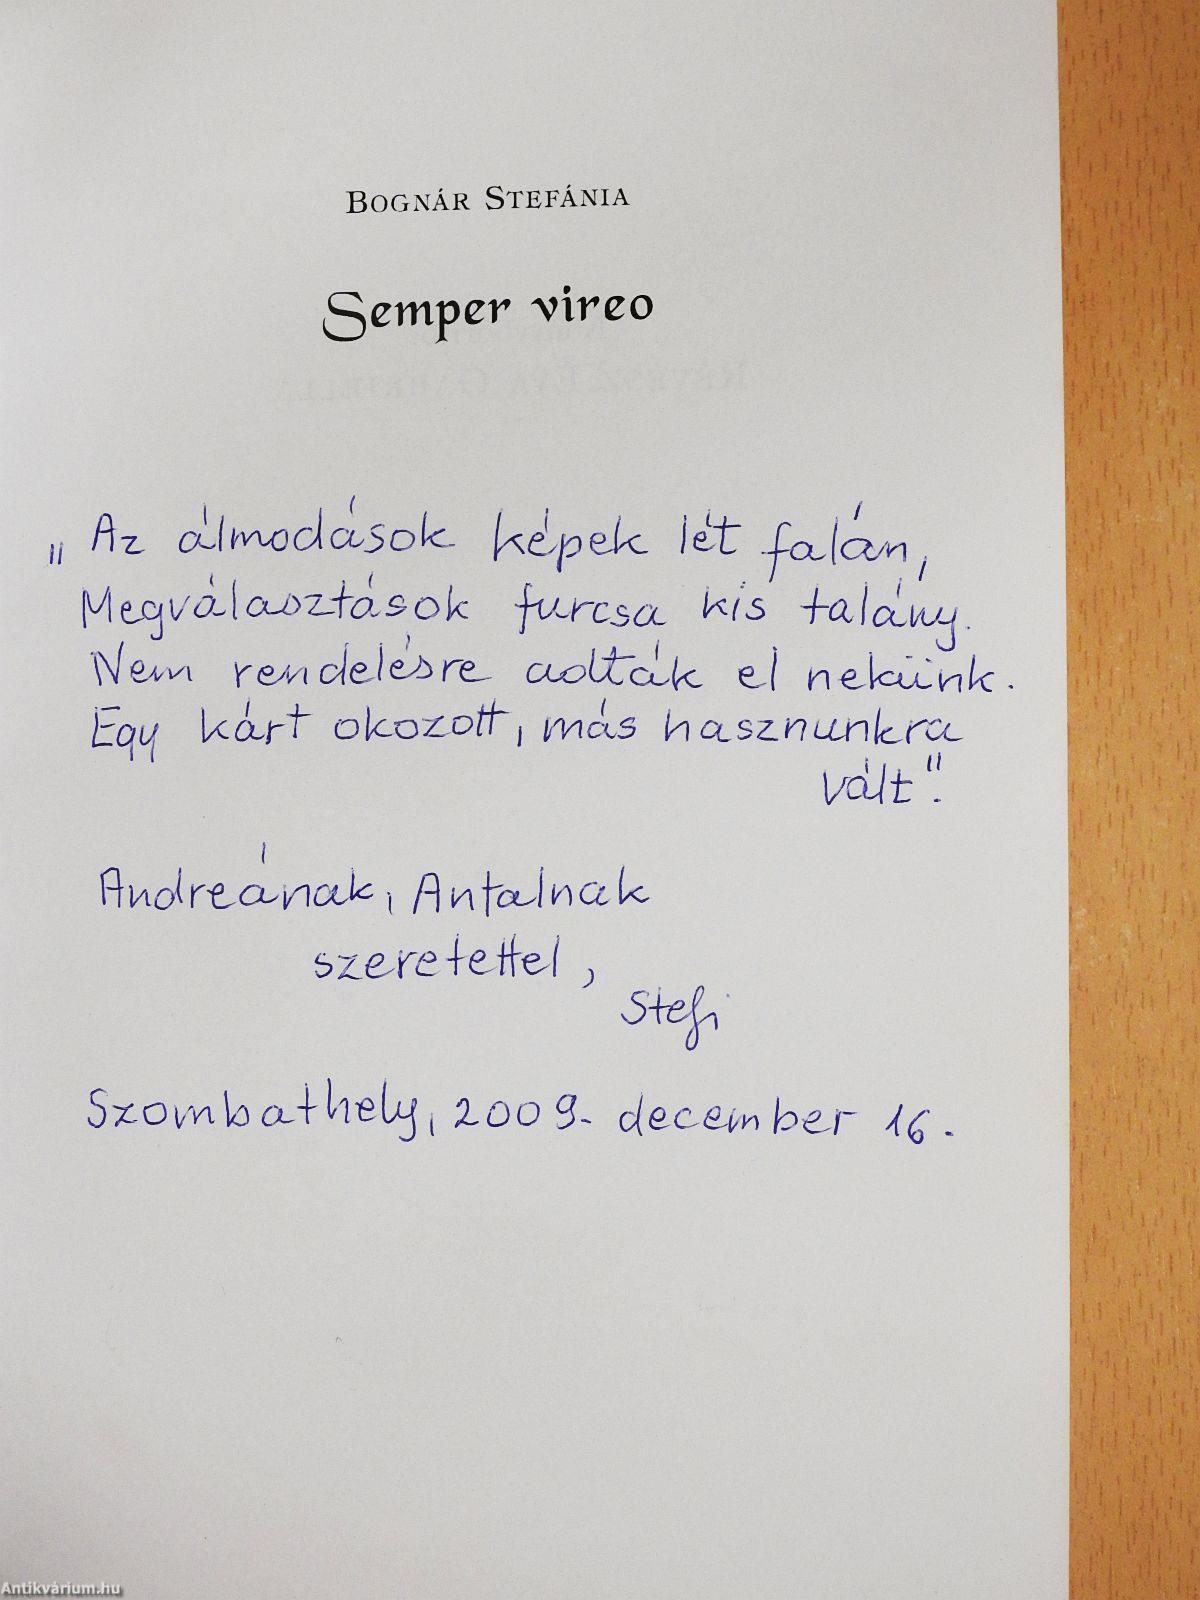 BOGNÁR STEFÁNIA
Semper vireo
„Az álmodások képek lét falán,
Megválasztások furcsa kis talány.
Nem rendelésre adták el nekünk.
Egy kárt okozott, más hasznunkra
vált".
Andreának, Antalnak
szeretettel,
Stefi
Szombathely, 2009. december 16.
Antikvárium.hu